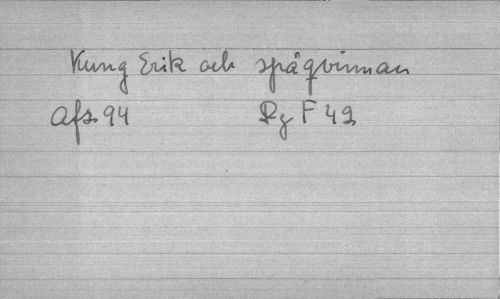 Kung Erik och spåqvinnan
Afz 94 Rz F 49